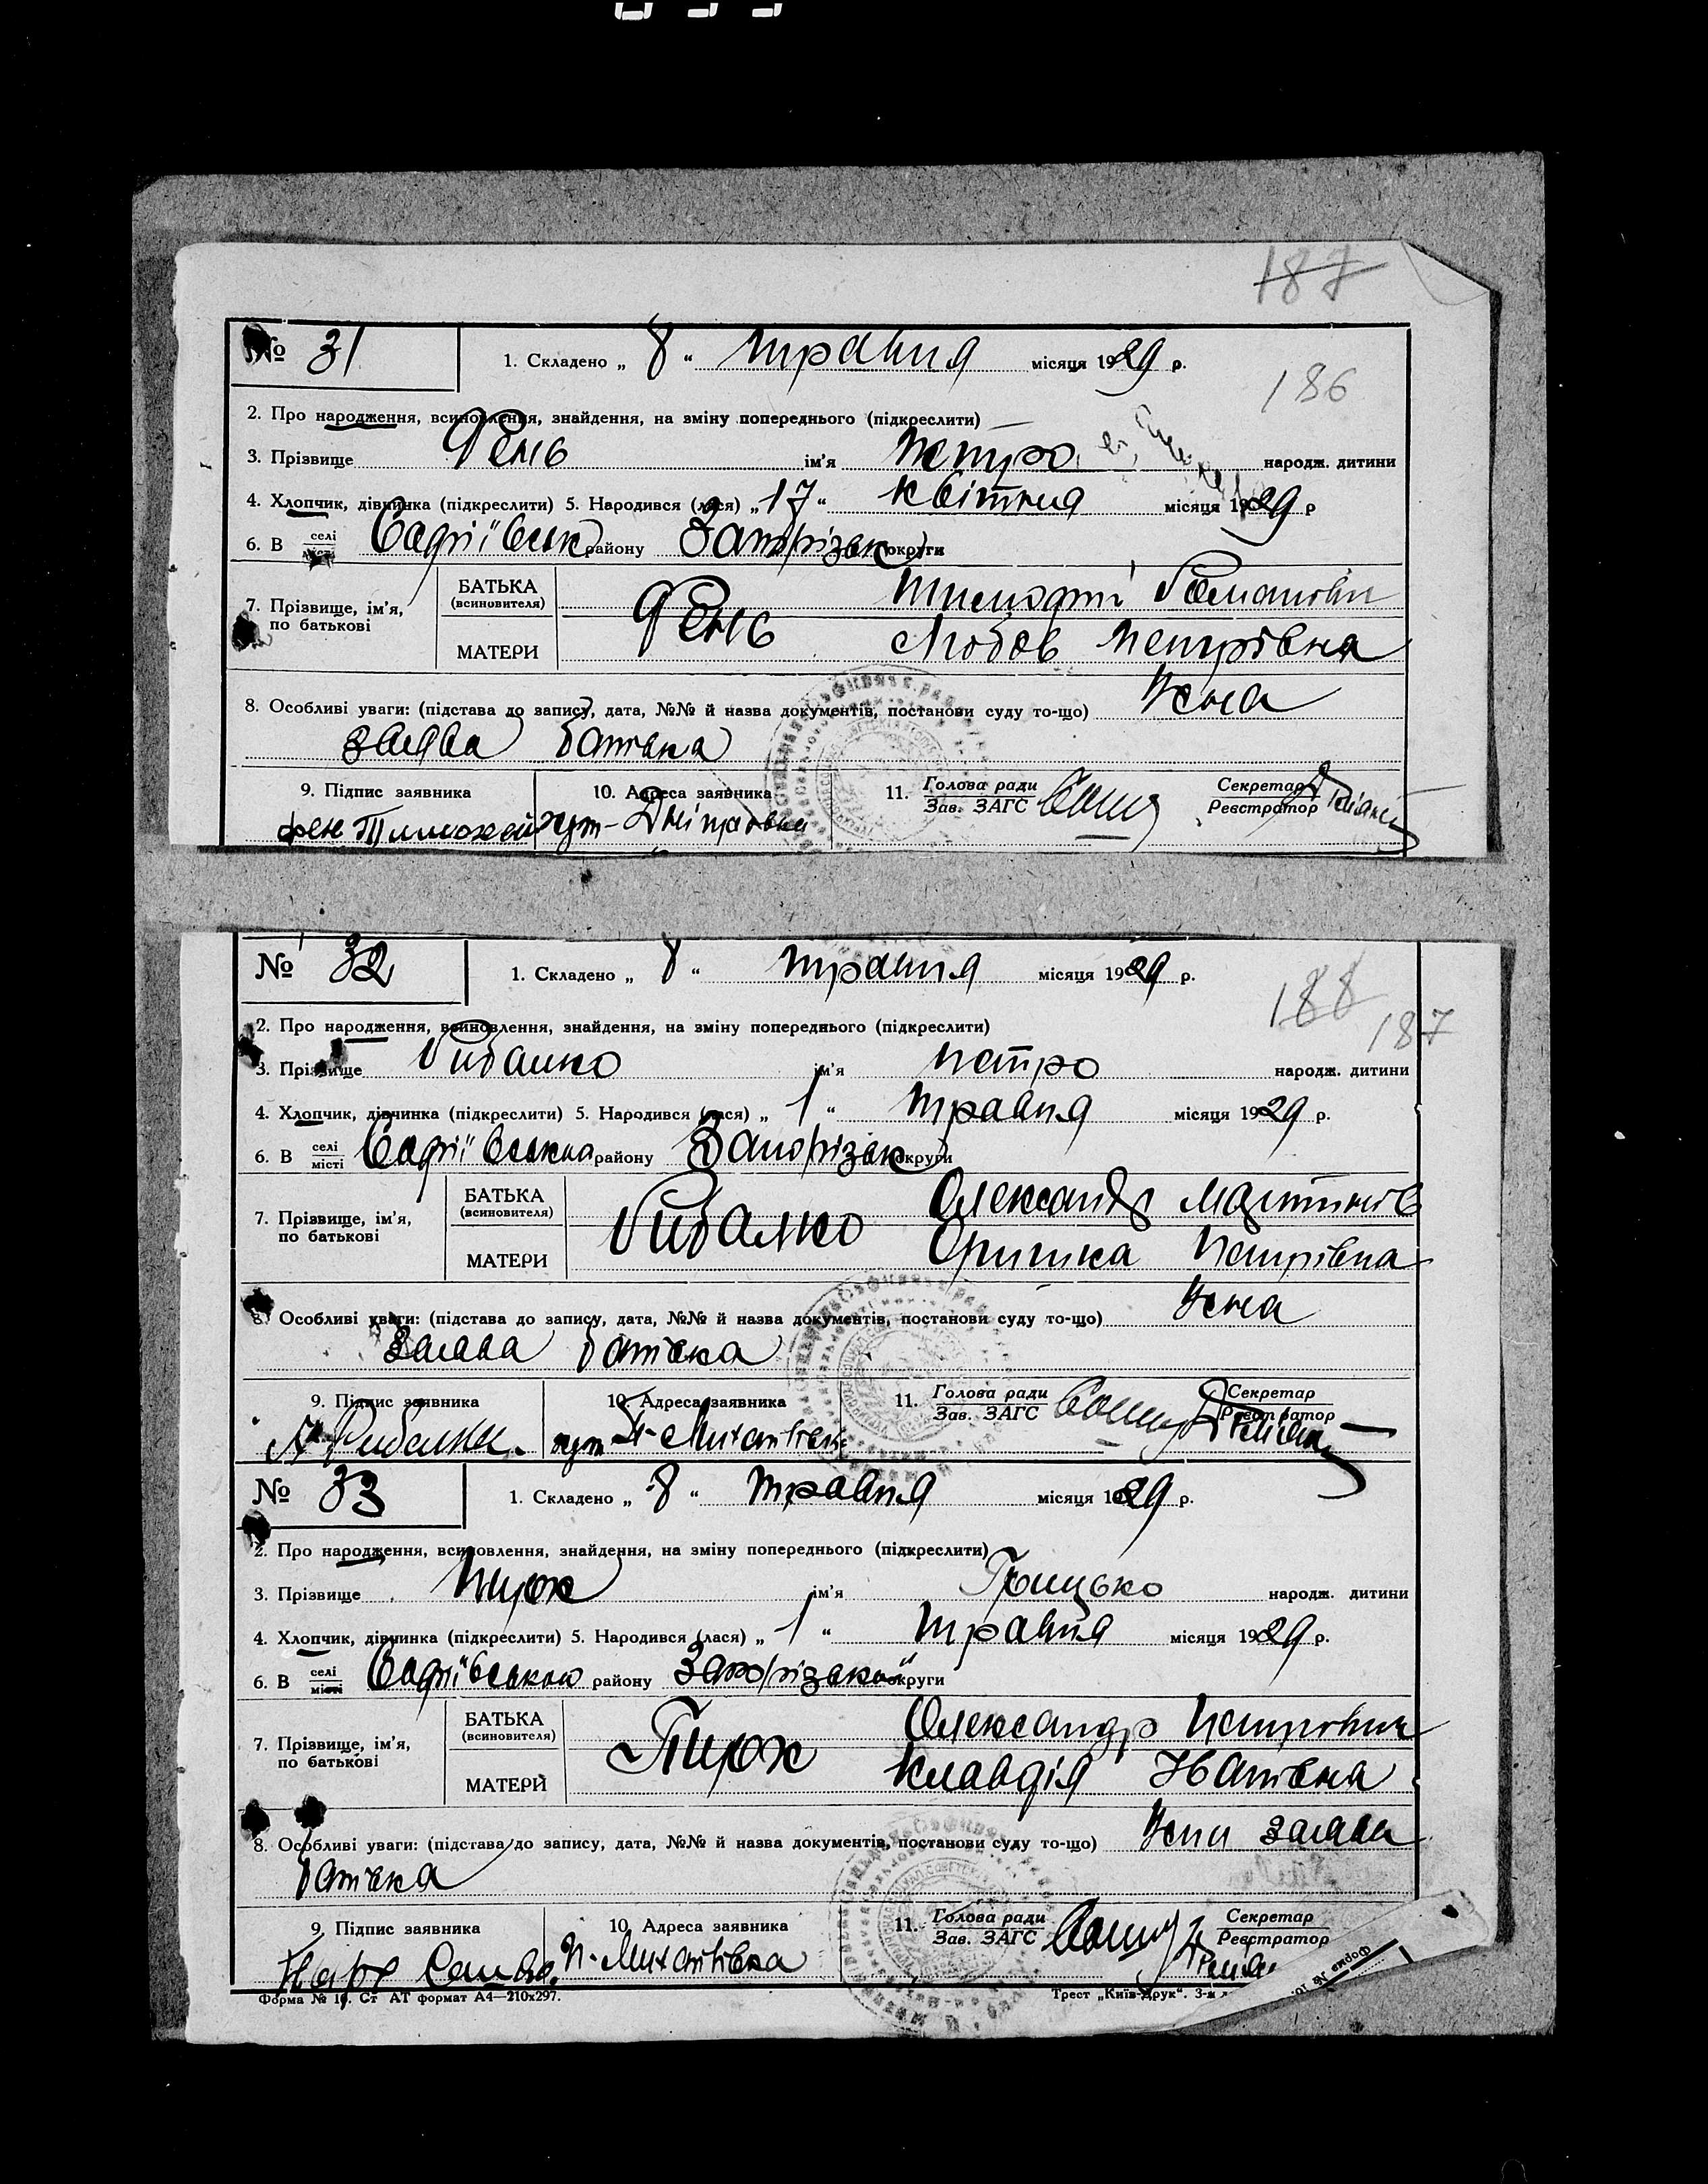 187
№ 31 1. Складено „ 8 “ травня місяця 1929 р.
186
2. Про народження, всиновлення, знайдення, на зміну попереднього (підкреслити)
3. Прізвище Фень ім'я Петро народж. дитини
4. Хлопчик, дівчинка (підкреслити) 5. Народився (лася) „ 17 “ квітня місяця 1929 р
6. В селі місті Софіївськ району Запорізьк округи
7. Прізвище, ім'я, по батькові БАТЬКА (всиновителя) Фень Тимофій Романович
МАТЕРИ Любов Петрівна
8. Особливі уваги: (підстава до запису, дата, №№ й назва документів, постанови суду то-що) Усна
заява батька
9. Підпис заявника 10. Адреса заявника 11. Голова ради Зав. ЗАГС Секретар Реєстратор
фен Тимохвей хут- Дніпровка
№ 32 1. Складено „ 8 “ травня місяця 1929 р.
188
187
2. Про народження, всиновлення, знайдення, на зміну попереднього (підкреслити)
3. Прізвище Рибалко ім'я Петро народж. дитини
4. Хлопчик, дівчинка (підкреслити) 5. Народився (лася) „ 1 “ травня місяця 1929 р.
6. В селі місті Софіївська району Запорізьк округи
7. Прізвище, ім'я, по батькові БАТЬКА (всиновителя) Рибалко Олександр Мартинів
МАТЕРИ Оришка Петрівна
8. Особливі уваги: (підстава до запису, дата, №№ й назва документів, постанови суду то-що) Усна
Заява батька
9. Підпис заявника 10. Адреса заявника 11. Голова ради Зав. ЗАГС Секретар Реєстратор
А Рибалка. хут Н-Михайлівк
№ 33 1. Складено „ 8 “ травня місяця 1929 р.
2. Про народження, всиновлення, знайдення, на зміну попереднього (підкреслити)
3. Прізвище Пирох ім'я Грицько народж. дитини
4. Хлопчик, дівчинка (підкреслити) 5. Народився (лася) „ 1 “ травня місяця 1929 р.
6. В селі місті Софіївського району Запорізької округи
7. Прізвище, ім'я, по батькові БАТЬКА (всиновителя) Пирох Олександр Петрович
МАТЕРИ Клавдія Ігнатівна
8. Особливі уваги: (підстава до запису, дата, №№ й назва документів, постанови суду то-що) Усна заява
батька
9. Підпис заявника 10. Адреса заявника 11. Голова ради Зав. ЗАГС Секретар Реєстратор
Н-Михайлівка
Форма № 10. Ст АТ формат А4—210х297. Трест „Київ-Друк“. 3-я
Форма №